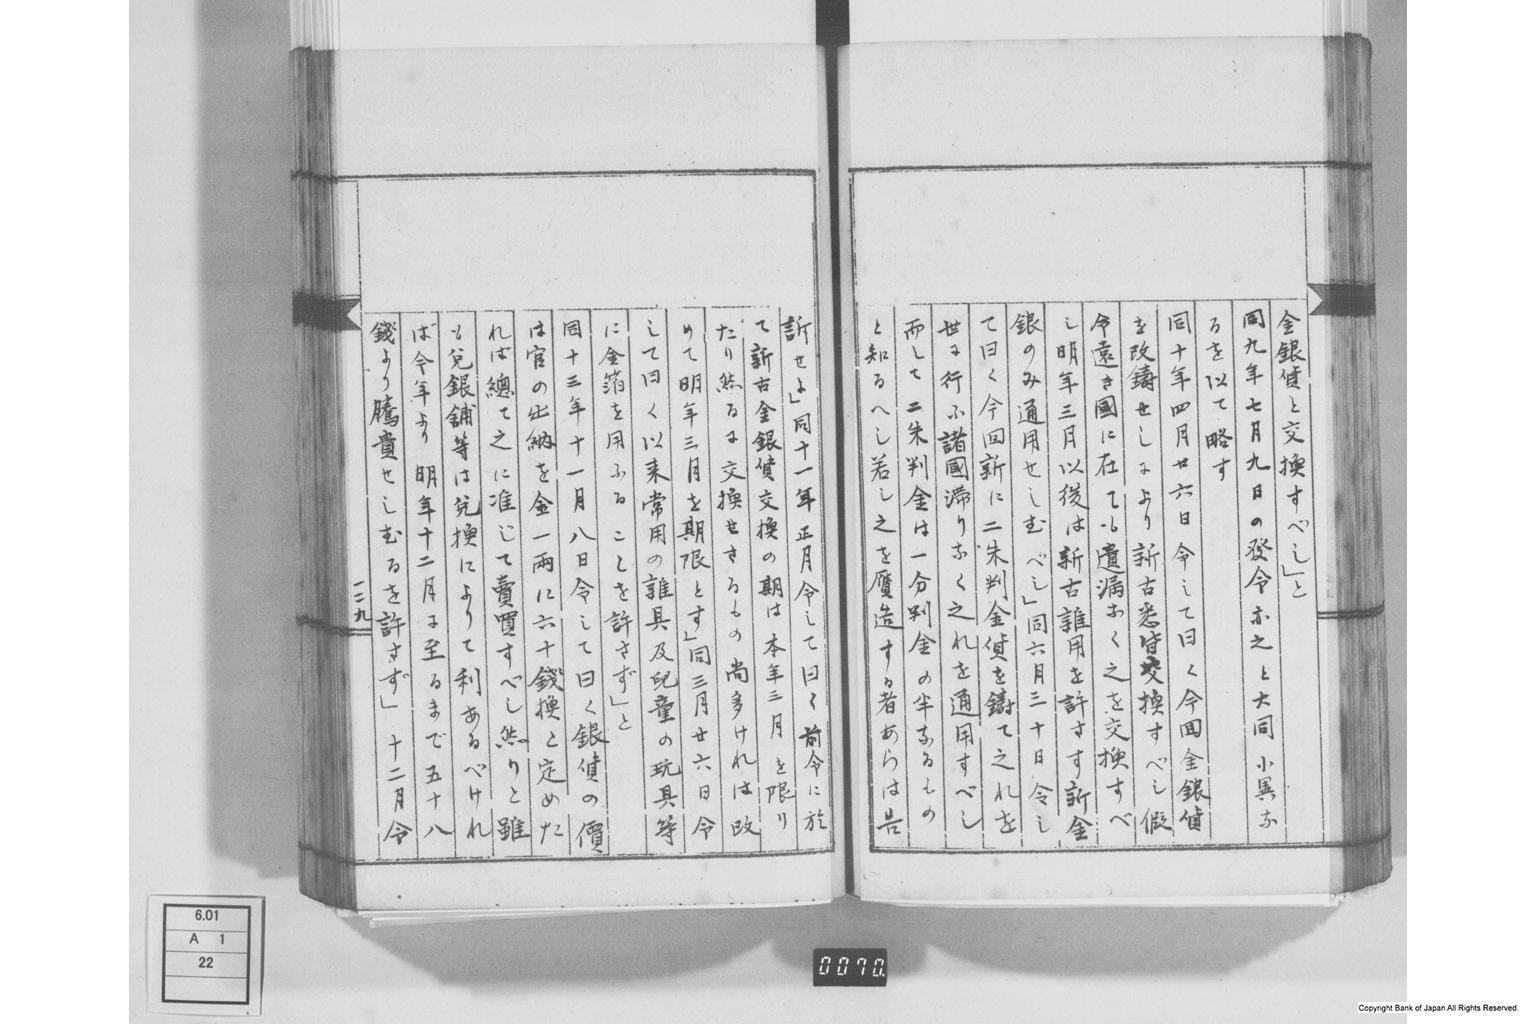 金銀貨と交換すべし」と
同九年七月九日の發令亦之と大同小異な
るを以て略す
同十年四月廿六日令して曰く今回金銀貨
を改鑄せしにより新古悉皆交換すべし假
令遠き國に在ても遺漏なく之を交換すべ
し明年三月以後は新古雜用を許さす新金
銀のみ通用せしむべし」同六月三十日令し
て曰く今回新に二朱判金貨を鑄て之れを
世に行ふ諸國滯りなく之れを通用すべし
而して二朱判金は一分判金の半なるもの
と知るへし若し之を贋造する者あらは告
訴せよ」同十一年正月令して曰く前令に於
て新古金銀貨交換の期は本年三月を限り
たり然るに交換せさるもの尚多けれは改
めて明年三月を期限とす」同三月廿六日令
して曰く以来常用の雜具及兒童の玩具等
に金箔を用ふることを許さず」と
同十三年十一月八日令して曰く銀貨の價
は官の出納を金一兩に六十錢換と定めた
れば總て之に准じて賣買すべし然りと雖
も兌銀舖等は兌換によりて利あるべけれ
ば今年より明年十二月に至るまで五十八
錢より騰貴せしむるを許さず」十二月令
一二九
6.01
A 1
22
0070
Copyright Bank of Japan All Rights Reserved.